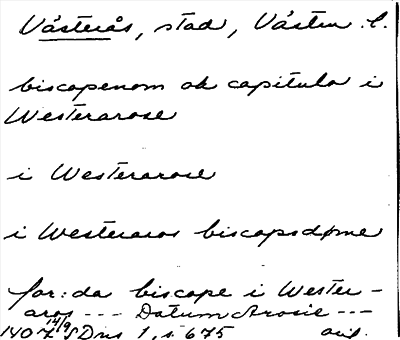 Västerås, stad, Västm. l.
biscopenom ok capitulo i
Westerarose
i Westerarose
i Westeraros biscopsdøme
for:da biscope i Wester-
aros --- Datum Arosie ---
1407 14/9 SDns 1, s 675 avs.